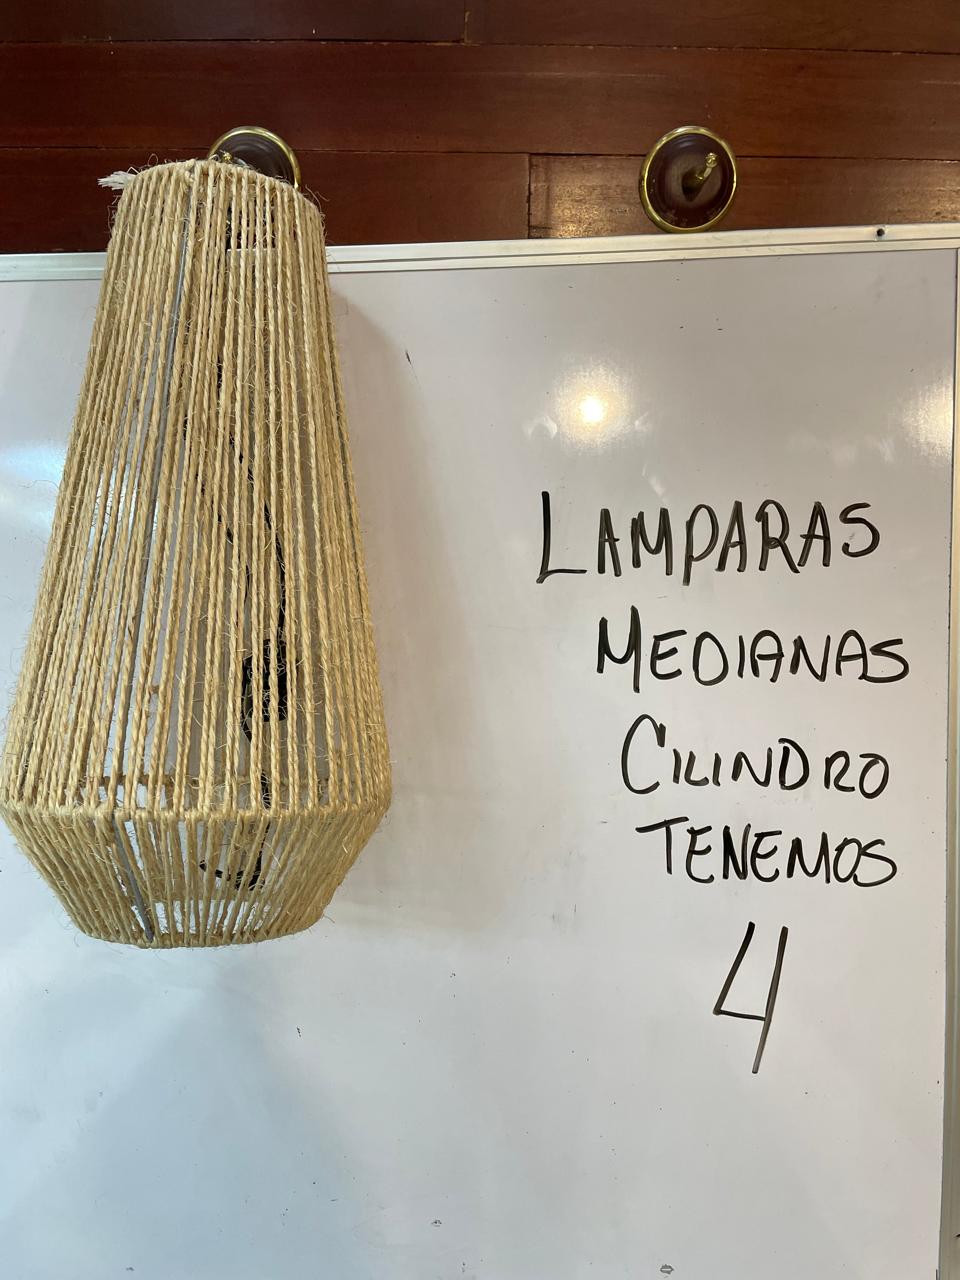 LAMPARAS
MEDIANAS
CILINDRO
TENEMOS
4